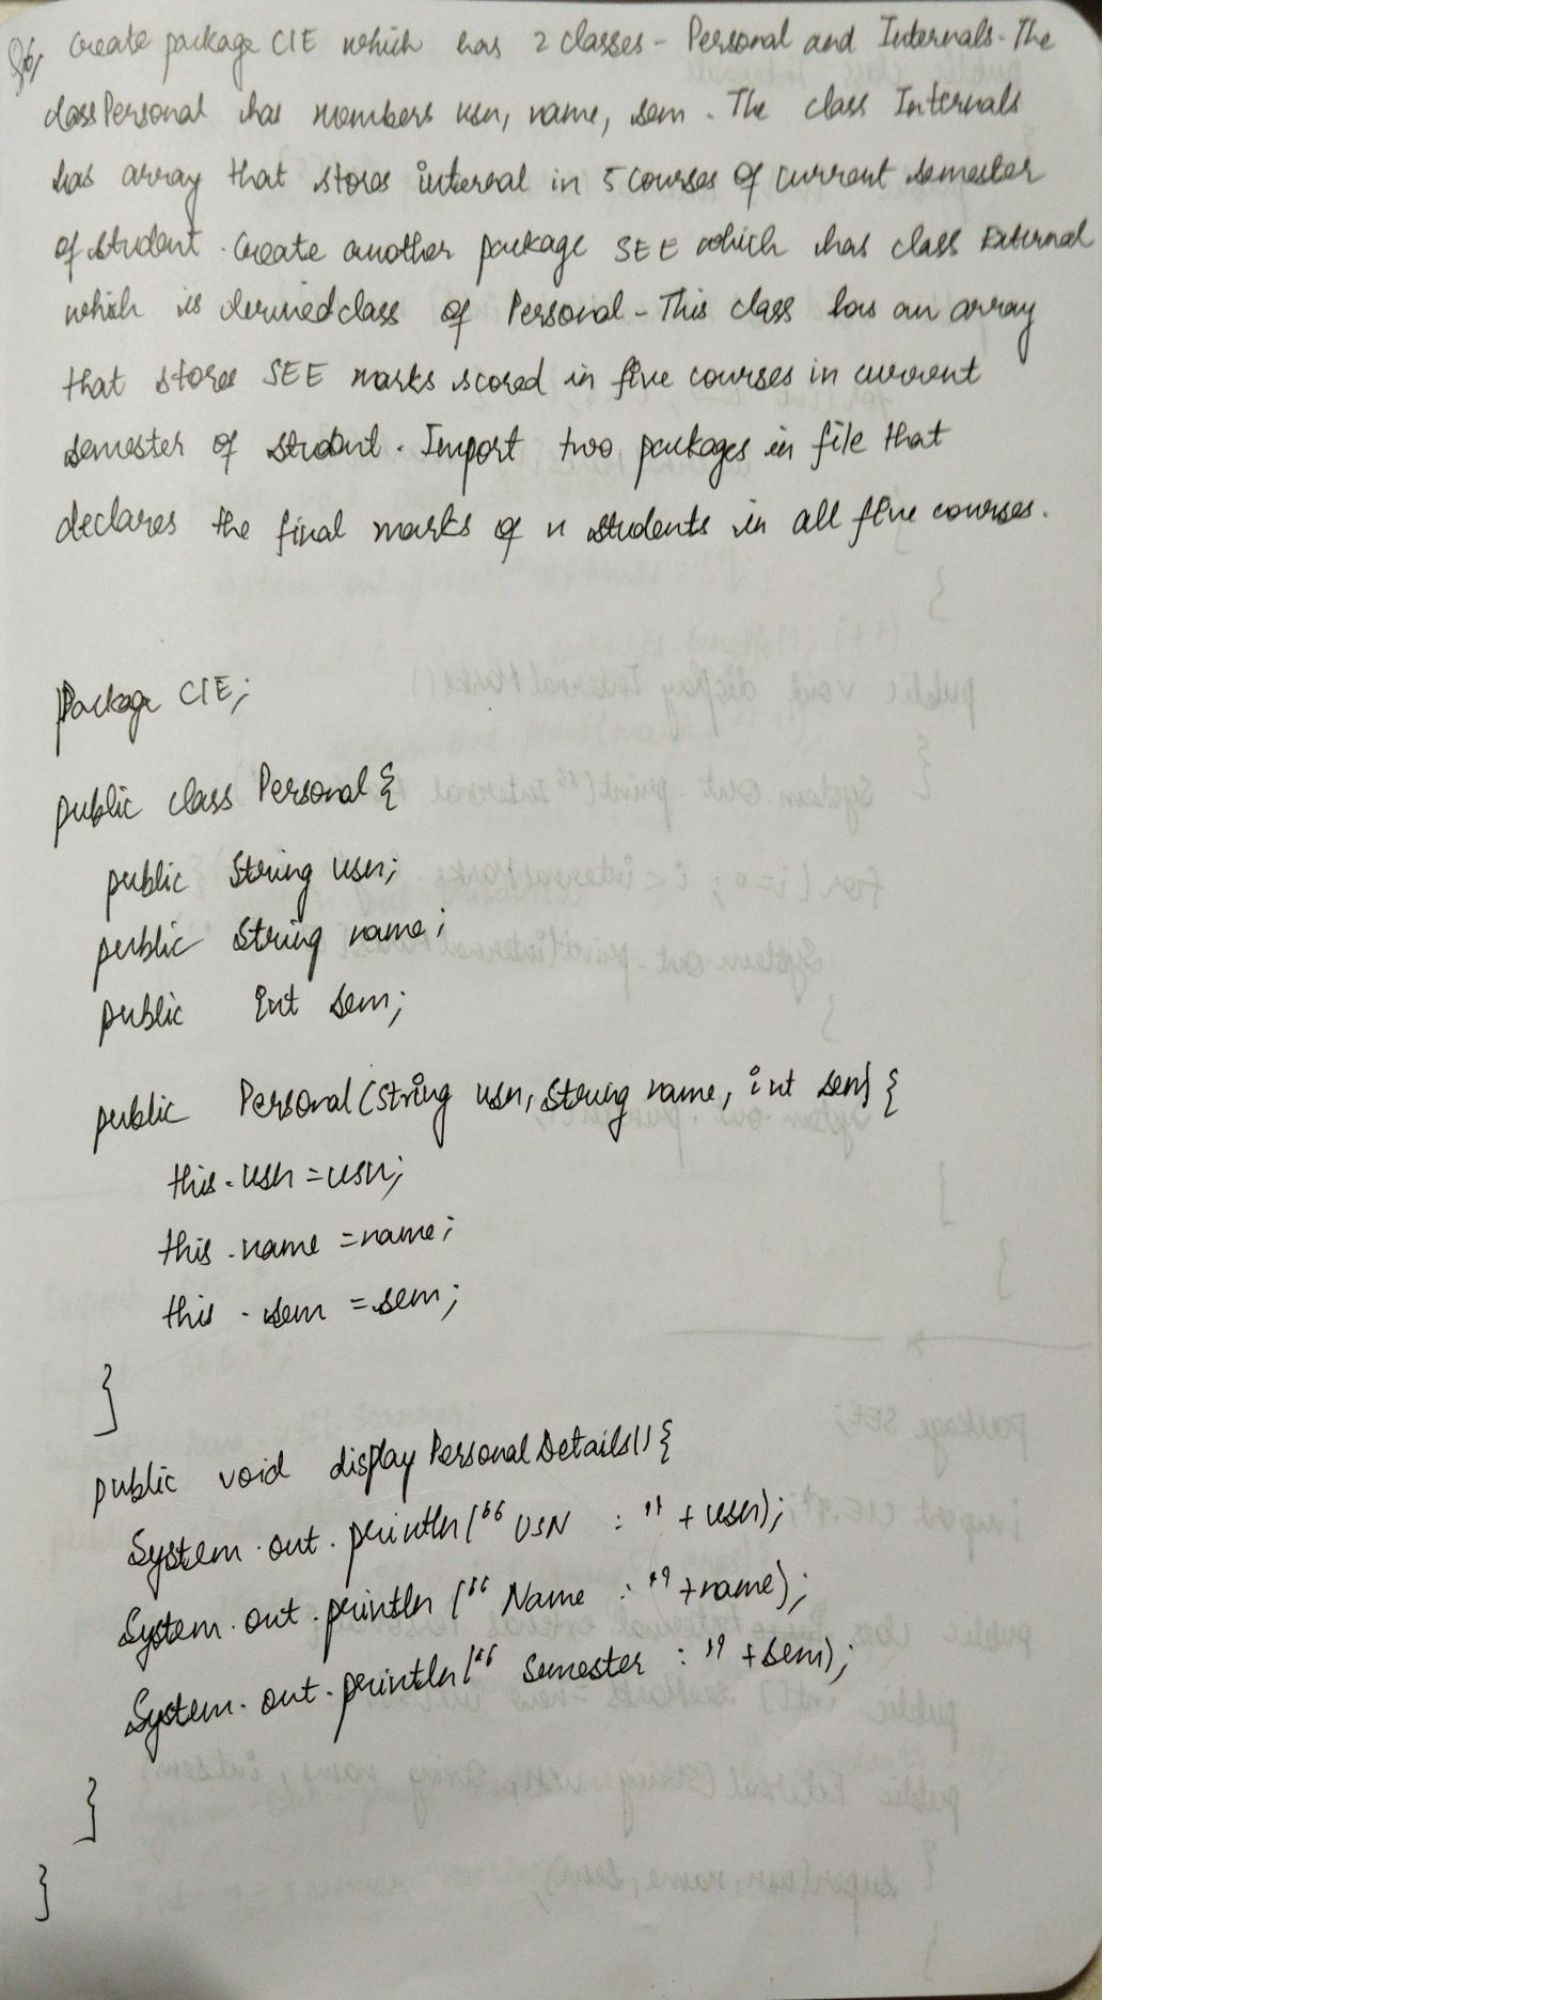 Q6, Create package CIE which has 2 classes - Personal and Internals. The
class Personal has members usn, name, sem. The class Internals
has array that stores internal in 5 courses of current semester
of student. Create another package SEE which has class External
which is derived class of Personal - This class has an array
that stores SEE marks scored in five courses in current
semester of student. Import two packages in file that
declares the final marks of n students in all five courses.
Package CIE;
public class Personal {
public String usn;
public String name;
public int sem;
public Personal (String usn, String name, int sem) {
this.usn = usn;
this.name = name;
this.sem = sem;
}
public void displayPersonalDetails() {
System.out.println("USN : " + usn);
System.out.println("Name : " + name);
System.out.println("Semester : " + sem);
}
}